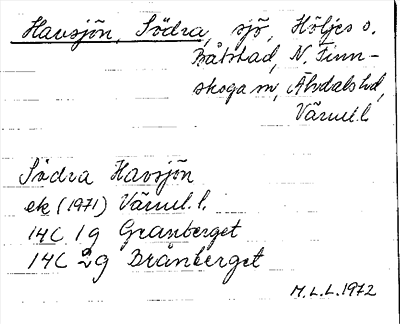 Havsjön, Södra, sjö, Höljes o.
Båtstad, N. Finn-
skoga sn, Älvdals hd,
Värml.
Södra Havsjön
ek (1971) Värml. l.
14C 1g Granberget
14C 2g Brånberget
M.L.L. 1972